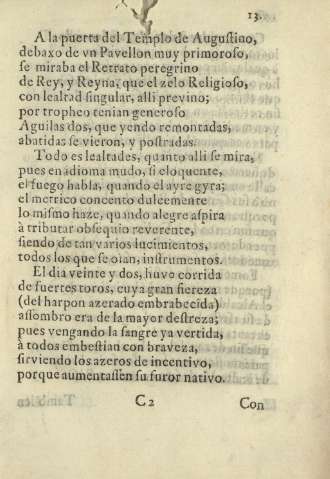 13.
A la puerta del Templo de Auguſtino,
debaxo de vn Pavellon muy primoroſo,
ſe miraba el Retrato peregrino
de Rey, y Reyna, que el zelo Religioſo,
con lealtad ſingular, alli previno;
por tropheo tenian generoſo
Aguilas dos, que yendo remontadas,
abatidas ſe vieron, y poſtradas.
Todo es lealtades, quanto alli ſe mira,
pues en idioma mudo, ſi eloquente,
el fuego habla, quando el ayre gyra;
el metrico concento dulcemente
lo miſmo haze, quando alegre aſpira
à tributar obſequio reverente,
ſiendo de tan varios lucimientos,
todos los que ſe oian, inſtrumentos.
El dia veinte y dos, huvo corrida
de fuertes toros, cuya gran fiereza
(del harpon azerado embrabecida)
aſſombro era de la mayor deſtreza;
pues vengando la ſangre ya vertida,
à todos embeſtian con braveza,
ſirviendo los azeros de incentivo,
porque aumentaſſen ſu furor nativo.
C 2
Con